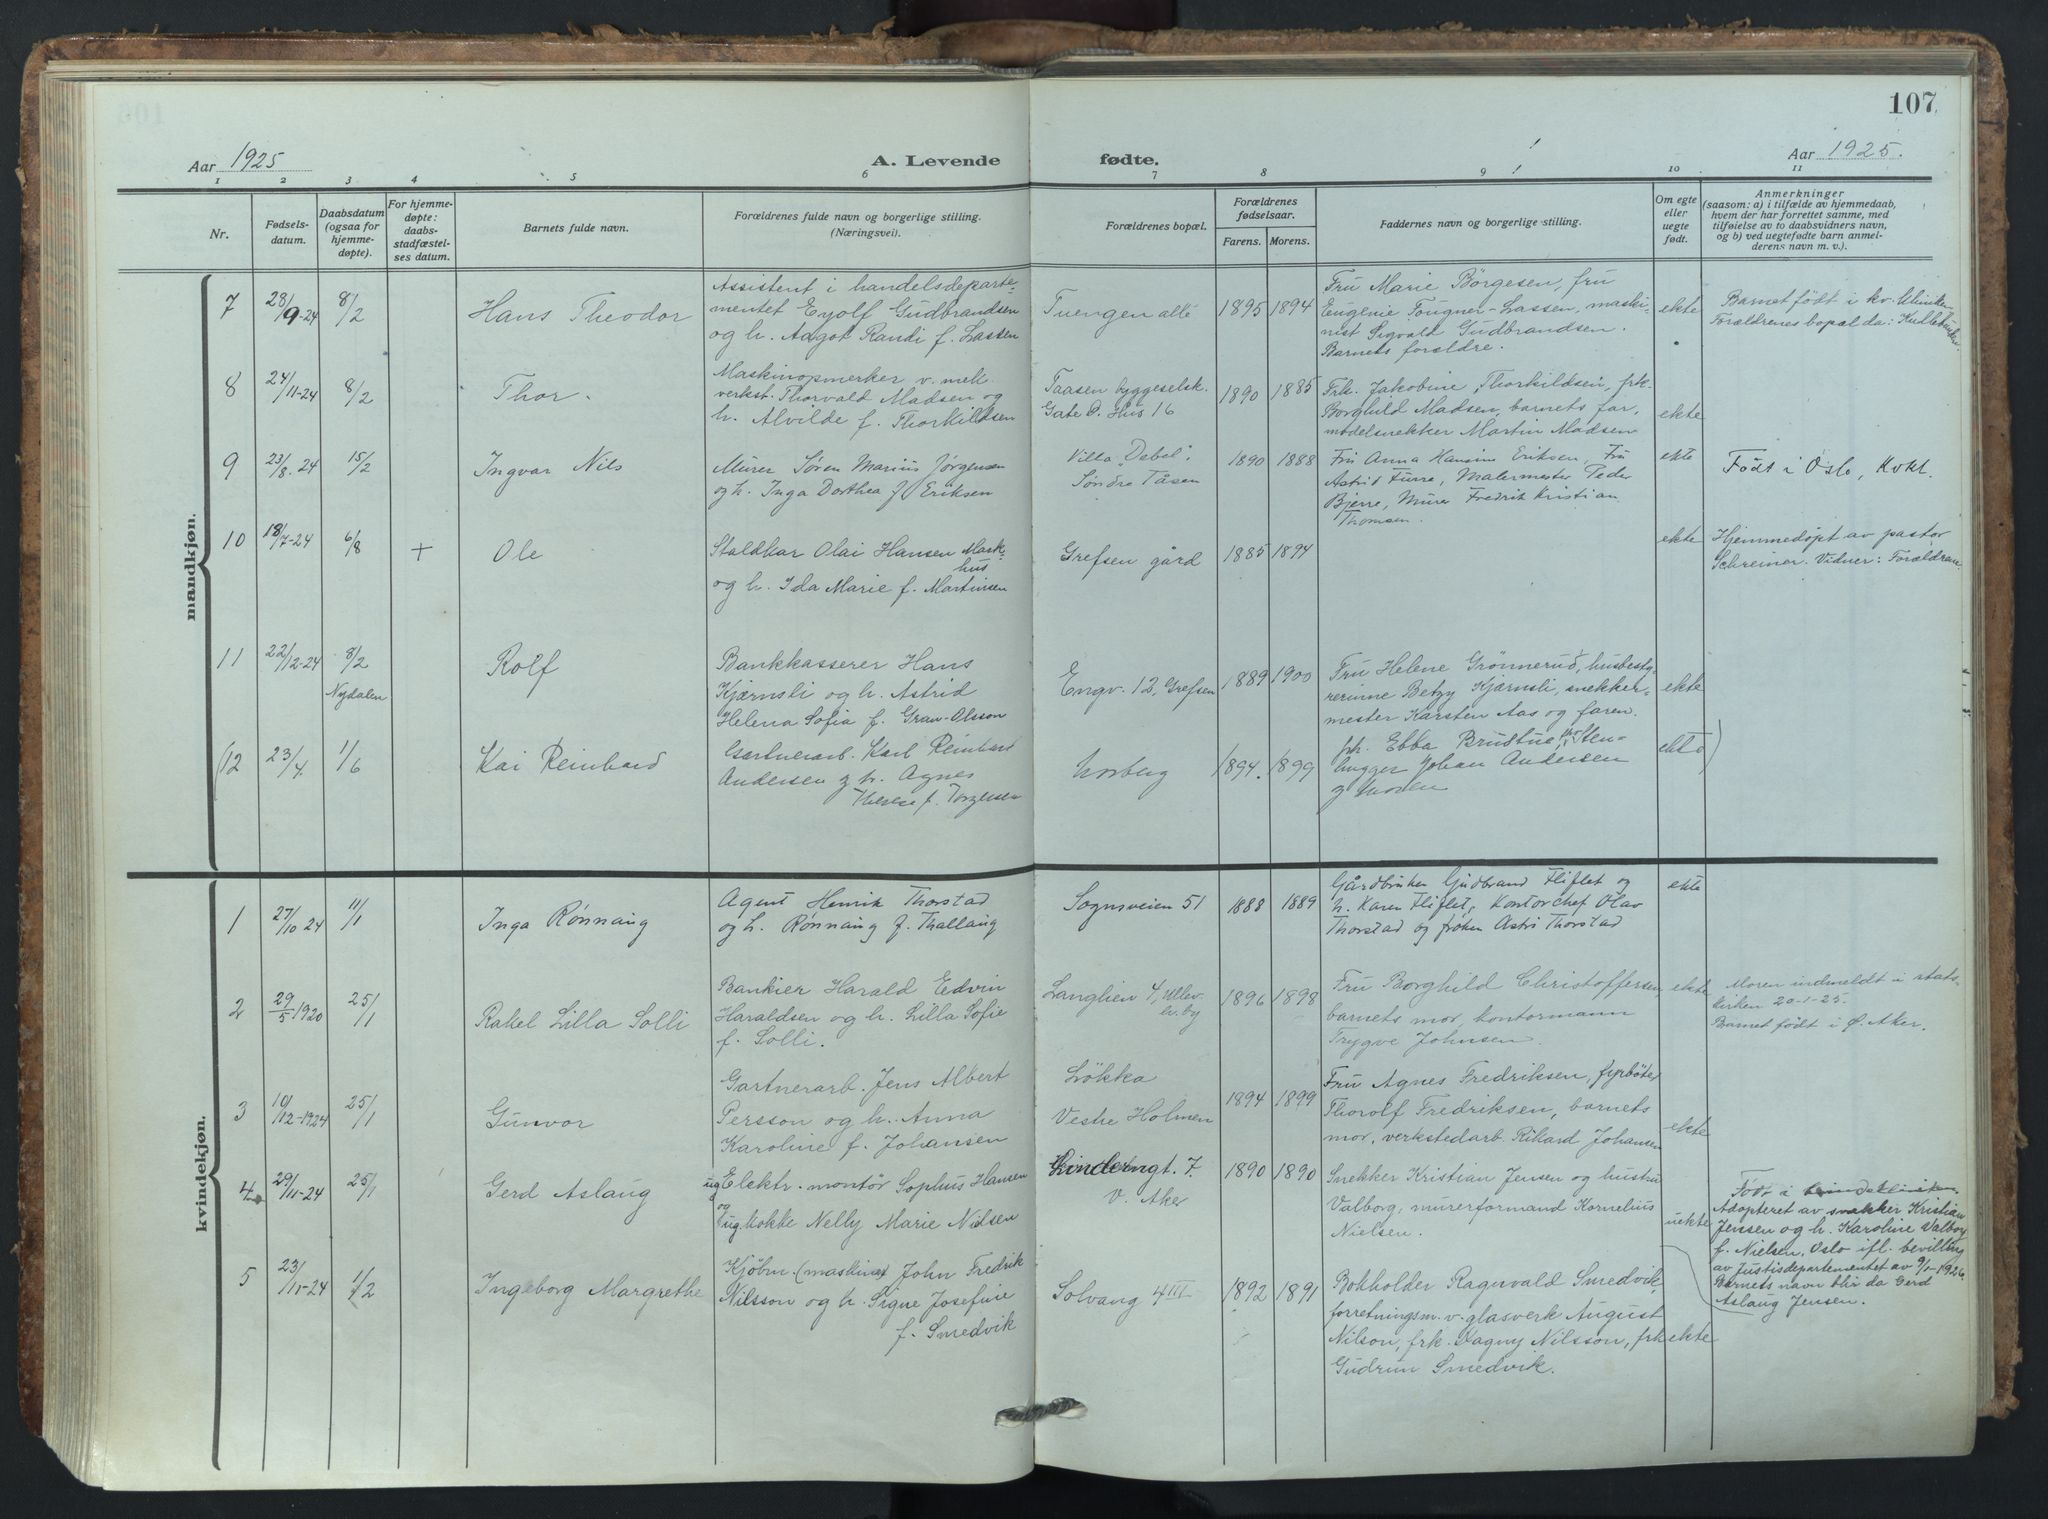 107
Aar 1925
A. Levende fødte.
Aar 1925.
1 2 3 4 5 6 7 8 9 10 11
Nr.
Fødsels-
datum.
Daabsdatum
(ogsaa for
hjemme-
døpte).
For hjemme-
døpte:
daabs-
stadfæstel-
ses datum.
Barnets fulde navn.
Forældrenes fulde navn og borgerlige stilling.
(Næringsvei).
Forældrenes bopæl.
Forældrenes
fødselsaar.
Farens. Morens.
Faddernes navn og borgerlige stilling.
Om egte
eller
uegte
født.
Anmerkninger
(saasom: a) i tilfælde av hjemmedaab,
hvem der har forrettet samme, med
tilføielse av to daabsvidners navn,
og b) ved uegtefødte barn anmel-
derens navn m. v.).
mandkjøn.
7 28/9-24 8/2 Hans Theodor
Assistent i handelsdeparte-
mentet Eyolf Gudbrandsen
og h. Aagot Randi f. Lassen
Tuengen allé 1895 1894
Fru Marie Börgesen, fru
Eugenie Tougner-Lassen, maski-
nist Sigvald Gudbrandsen.
Barnets forældre.
ekte
Barnet født i kv. kliniken
Forældrenes bopæl da:
8 24/11-24 8/2 Thor.
Maskinopmerker v. mek.
verkst. Thorvald Madsen og
h. Alvilde f. Thorkildsen
Taasen byggeselsk.
Gate D. Hus 16
1890 1885
Frk. Jakobine Thorkildsen, frk.
Borghild Madsen, barnets far,
modelsnekker Martin Madsen
ekte
9 23/8-24 15/2 Ingvar Nils
Murer Søren Marius Jørgensen
og h. Inga Dorthea f Eriksen
Villa "Debel".
Søndre Tåsen
1890 1888
Fru Anna Hansine Eriksen, Fru
Astrid Furre, Malermester Peder
Bjerre, Murer Fredrik Kristian
Thomsen.
ekte
Født i Oslo, Kvkl.
10 18/7-24 6/8 + Ole
Staldkar Olai Hansen Mask-
hus
og h. Ida Marie f. Martinsen
Grefsen gård 1885 1894
ekte
Hjemmedøpt av pastor
Schreiner. Vidner: Forældrene.
11 22/12-24 8/2
Nydalen
Rolf
Bankkasserer Hans
Kjærnsli og h. Astrid
Helena Sofia f. Graw-Olsson
Engv. 12, Grefsen 1889 1900
Fru Helene Grönnerud, husbesty-
rerinne Betzy Kjærnsli, snekker-
mester Karsten Aas og faren.
ekte
(12 23/4. 1/6 Kai Reinhard
Gartnerarb. Karl Reinhard
Andersen g h. Agnes
Therese f. Torgersen
Norberg 1894. 1899
frk. Ebba Sten-
hugger Johan Andersen
g moren
ekte )
kvindekjøn.
1 27/10 24 11/1 Inga Rønnaug
Agent Henrik Thorstad
og h. Rønnaug f. Thallaug
Sognsveien 51 1888 1889
Gårdbruker Gudbrand Fliflet og
h. Karen Fliflet, Kontorchef Olav
Thorstad og frøken Astri Thorstad
ekte
2 29/5 1920 25/1 Rakel Lilla Solli
Bankier Harald Edvin
Haraldsen og h. Lilla Sofie
f. Solli.
Langlien 4, Ullev.
hv.by
1896 1898
Fru Borghild Christoffersen,
barnets mor, kontormann
Trygve Johnsen.
ekte
Moren indmeldt i stats-
kirken 20-1-25.
Barnet født i Ø. Aker.
3 10/12-1924 25/1 Gunvor
Gartnerarb. Jens Albert
Persson og h. Anna
Karoline f. Johansen
Lökka
Vestre Holmen
1894 1899
Fru Agnes Fredriksen, fyrbøter
Thorolf Fredriksen, barnets
mor, verkstedarb. Rikard Johansen
ekte
4. 29/11-24 25/1 Gerd Aslaug
ug Elektr. montør Sophus Hansen
og
ug kokke Nelly Marie Nielsen
gt. 7
V. Aker
1890 1890
Snekker Kristian Jensen og hustru
Valborg, murerformand Kornelius
Nielsen.
uekte
Født i kvindekliniken.
Adopteret av snekker Kristian
Jensen og h. Karoline Valborg
f. Nielsen, Oslo ifl. bevilling
av Justisdepartementet av 9/1-1926.
Barnets navn blir da Gerd
Aslaug Jensen.
5 23/11-24 1/2 Ingeborg Margrethe
Kjøbm. (maskiner) John Fredrik
Nilsson og h. Signe Josefine
f. Smedvik
Solvang 4 III 1892 1891
Bokholder Ragnvald Smedvik,
forretningsm. v. glasverk August
Nilson, frk. Dagny Nilsson, frk
Gudrun Smedvik.
ekte